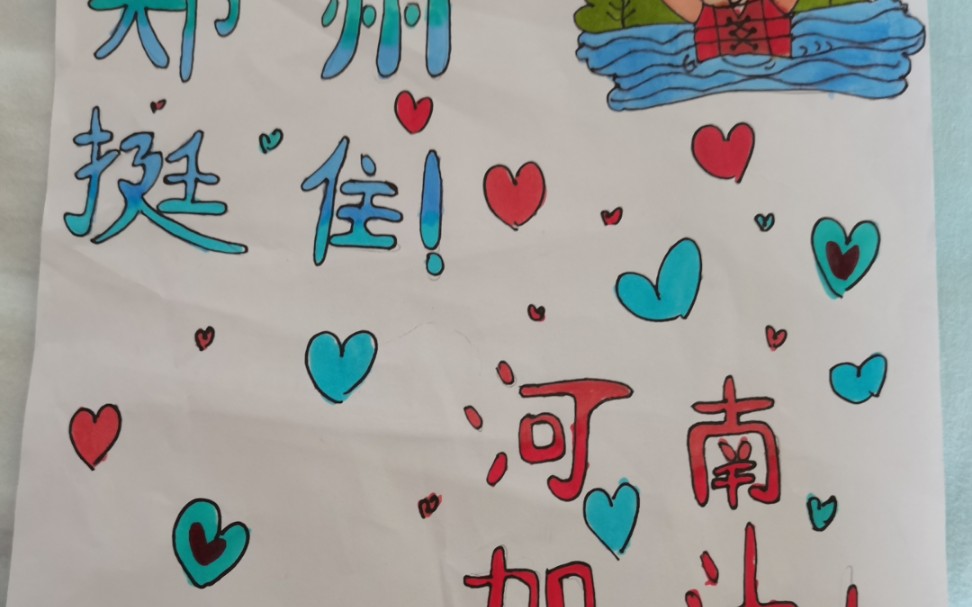 郑州
挺住!
河南
加油